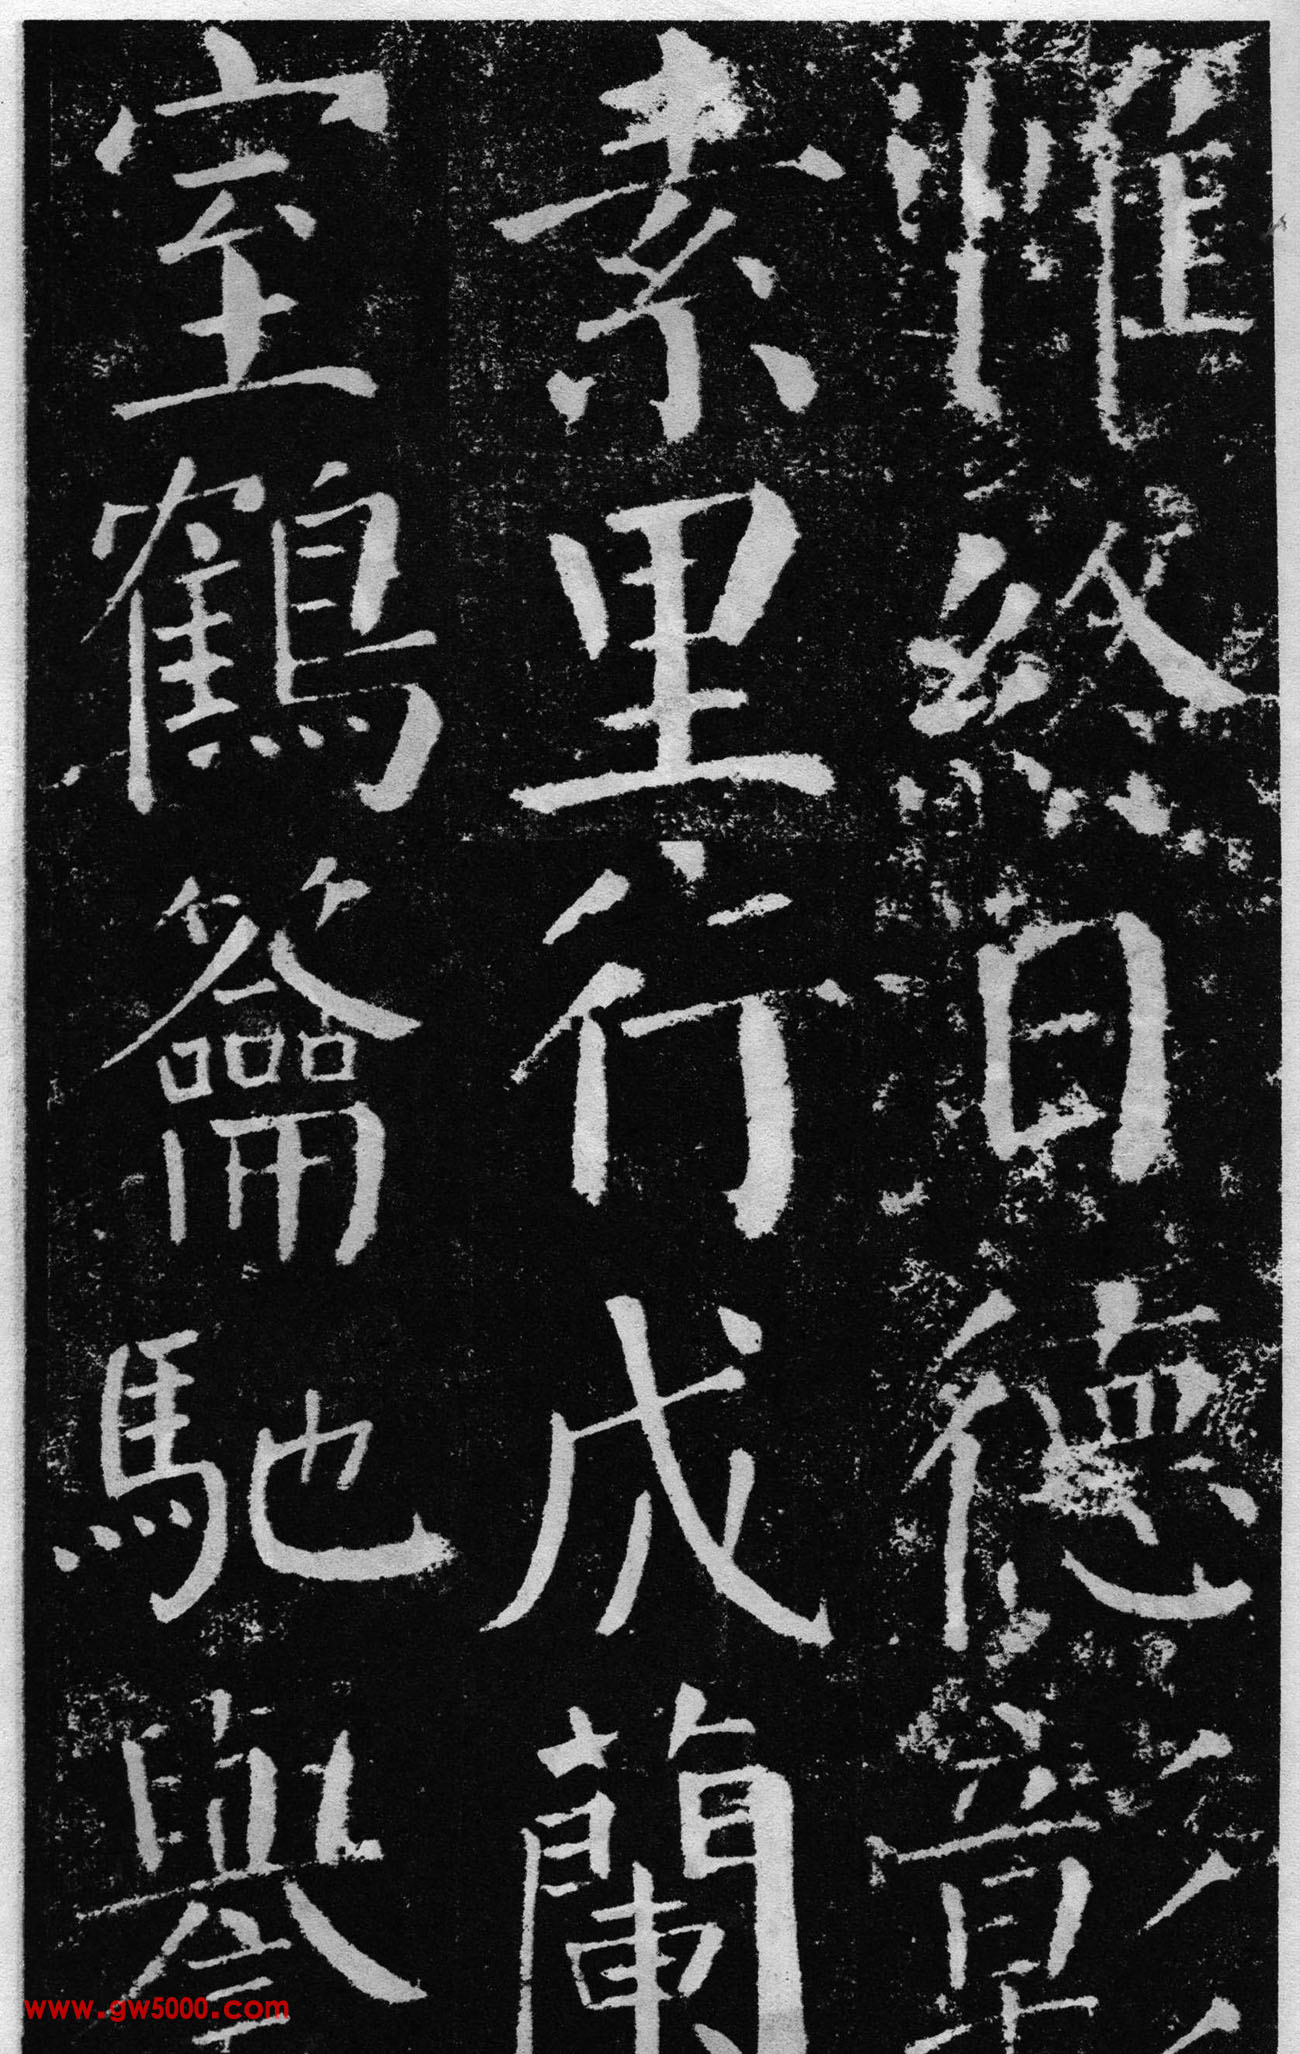 惟終日德彰
素里行成蘭
室鶴籥馳譽
www.gw5000.com